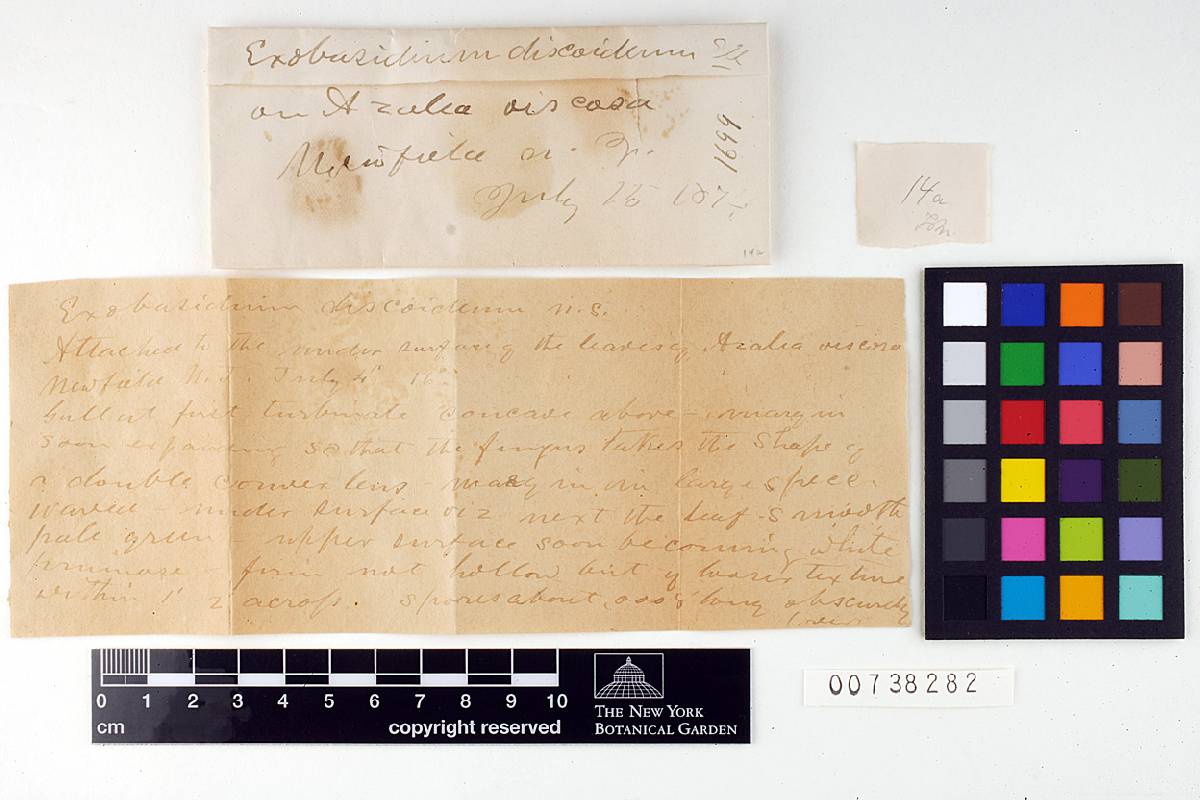 Exobasidium discoideum Ell
on Azalea viscosa
Newfield N. J.
July 187
1699
142
14a
Exobasidium discoideum n.s.
Attached to the under surface of the leaves of Azalia viscosa
Newfield N.J. July 4
Gall at first turbinate concave above - margin
soon expanding so that the fungus takes the shape of
a double convex lens - margin in large spec.
waved - under surface viz next the leaf - smooth
pale green - upper surface soon becoming white
pruinose - firm not hollow but of looser texture
within 1' 2 across. Spores about .0008' long obscurely
0 1 2 3 4 5 6 7 8 9 10
cm
copyright reserved
THE NEW YORK
BOTANICAL GARDEN
00738282